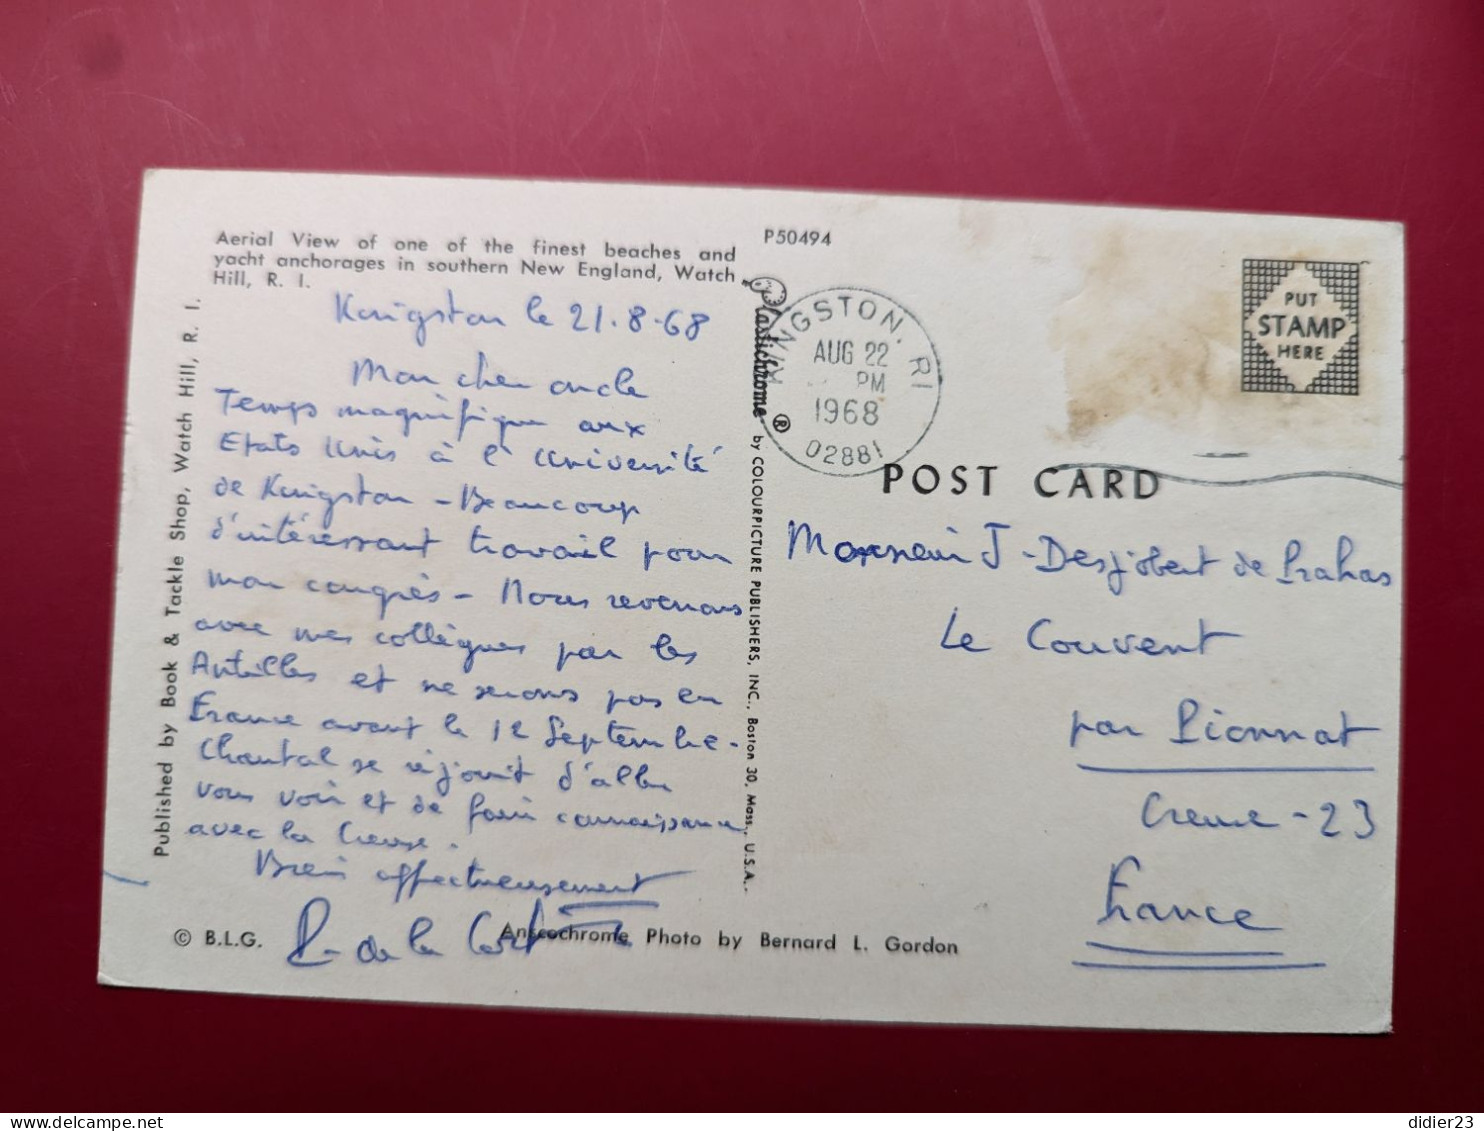 Aerial View of one of the finest beaches and
yacht anchorages in southern New England, Watch
Hill, R. I.
Kingston le 21.8.68
Mon cher oncle
Temps magnifique aux
Etats Unis à l'Université
de Kingston - Beaucoup
d'intéressant travail pour
mon congrès - Nous revenons
avec mes collègues par les
Antilles et ne serons pas en
France avant le 12 Septembre.
Chantal se réjouit d'aller
vous voir et de faire connaissance
avec la Creuse.
Bien affectueusement
de la
© B.L.G.
Anscochrome Photo by Bernard L. Gordon
Published by Book & Tackle Shop, Watch Hill, R. I.
Plastichrome ® by COLOURPICTURE PUBLISHERS, INC., Boston 30, Mass., U.S.A.
P50494
KINGSTON, RI
AUG 22
PM
1968
02881
PUT
STAMP
HERE
POST CARD
Monsieur J. Desjobert de Prahas
Le Couvent
par Pionnat
Creuse - 23
France
didier23